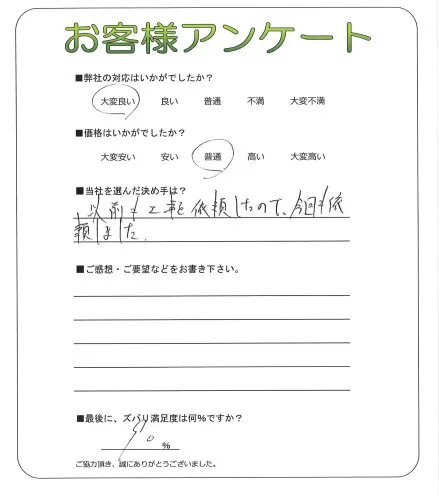 お客様アンケート
■弊社の対応はいかがでしたか？
大変良い 良い 普通 不満 大変不満
■価格はいかがでしたか？
大変安い 安い 普通 高い 大変高い
■当社を選んだ決め手は？
以前も工事を依頼したので、今回も依
頼しました。
■ご感想・ご要望などをお書き下さい。
■最後に、ズバリ満足度は何％ですか？
%
ご協力頂き、誠にありがとうございました。